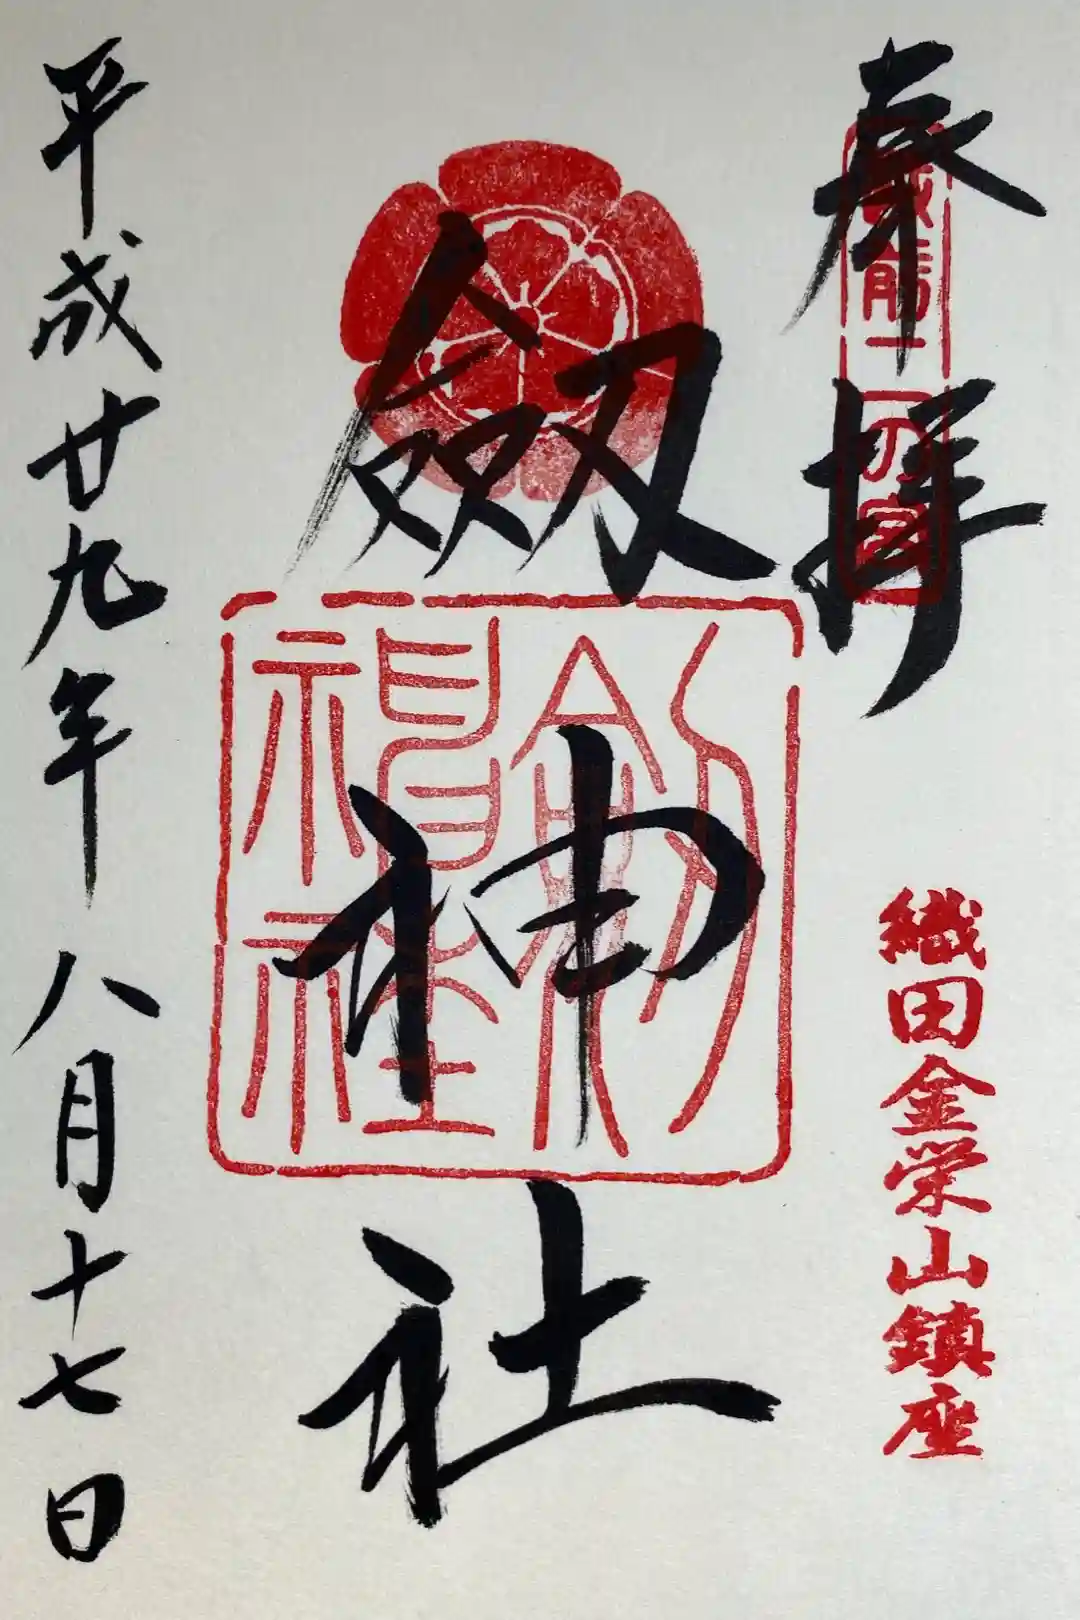 奉拝
越前二の宮
織田金栄山鎮座
劔神社
劔神社
平成廿九年八月十七日